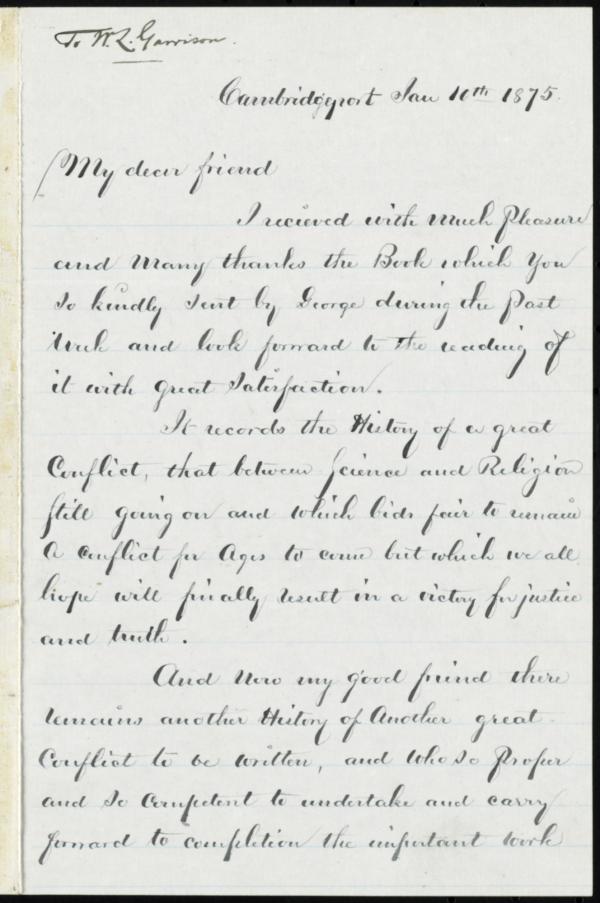 To W. L. Garrison.
Cambridgeport Jan 10th 1875.
My dear friend
I recieved with Much Pleasure
and Many thanks the Book which You
So kindly Sent by George during the Past
Week and look forward to the reading of
it with great Satisfaction.
It records the History of a great
Conflict, that between Science and Religion
Still going on and which bids fair to remain
A conflict for Ages to come but which we all
hope will finally result in a victory for justice
and truth.
And Now my good friend there
remains another History of Another great
Conflict to be written, and who so Proper
and so Competent to undertake and carry
forward to completion the important work